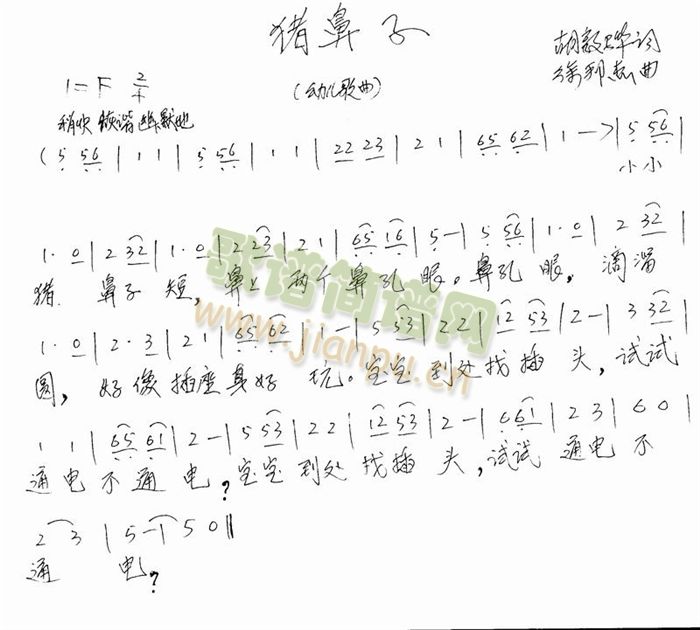 猪鼻子
胡敖 词
1=F 2/4
(幼儿歌曲)
曲
稍快 诙谐 幽默地
( 5 56 | 1 1 | 5 56 | 1 1 | 22 23 | 2 1 | 65 62 | 1 —> | 5 56 |
小小
1· 0 | 2 32 | 1· 0 | 2 23 | 2 1 | 65 16 | 5 - | 5 56 | 1· 0 | 2 32 |
猪 鼻子 短, 鼻上 两个 鼻孔 眼。鼻孔 眼, 滴溜
1· 0 | 2· 3 | 2 1 | 65 62 | 1 - | 5 53 | 2 2 | 12 53 | 2 - | 3 32 |
圆, 好像插座真好 玩。宝宝 到处找插 头, 试试
1 1 | 65 61 | 2 - | 5 53 | 2 2 | 12 53 | 2 - | 6 61 | 2 3 | 6 0 |
通电不通电?宝宝到处找插 头,试试 通电不
2 3 | 5 - | 5 0 ‖
通 电?
歌谱简谱网
www.jianpu.cn